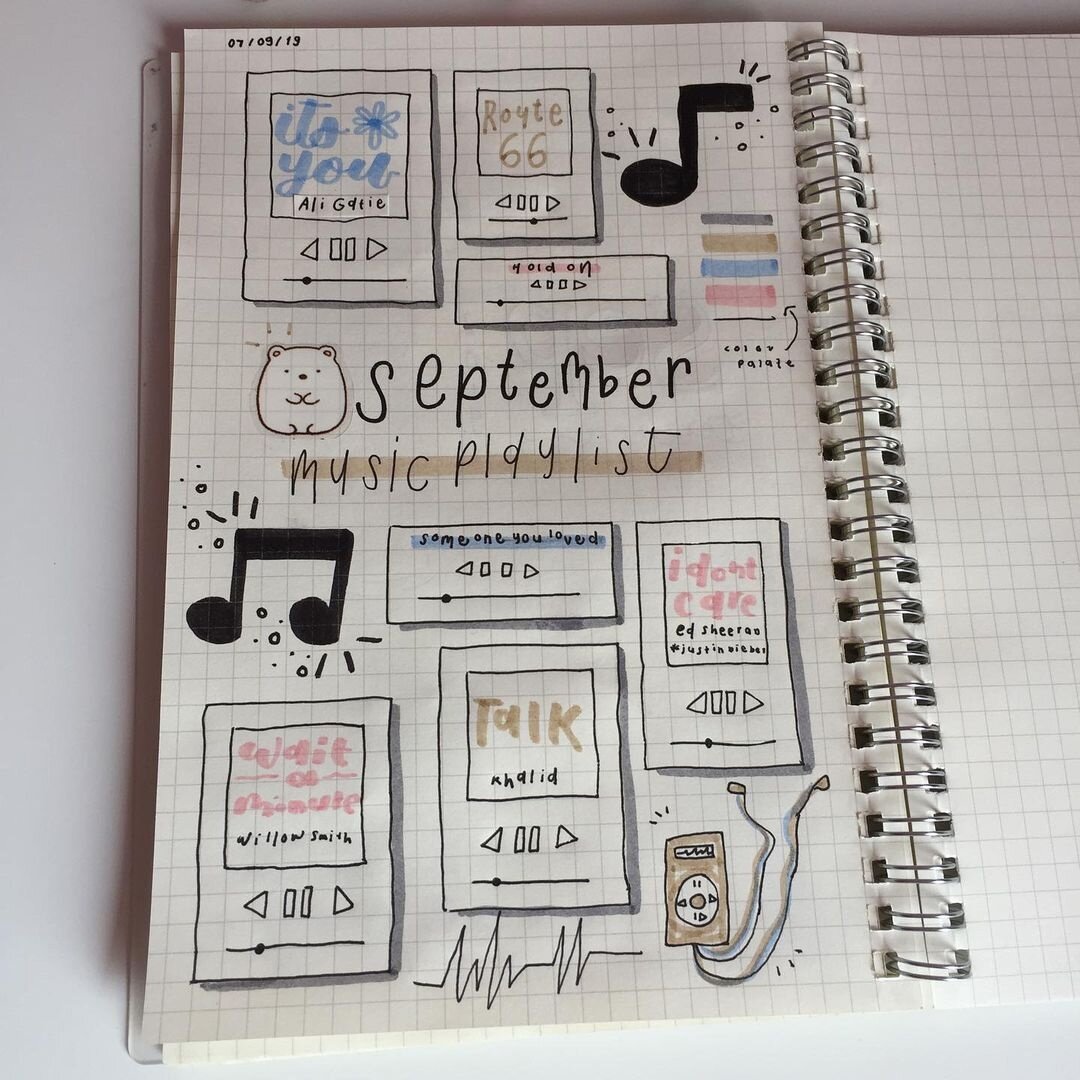 07/09/19
its
you
Ali Gatie
Route
66
Hold on
color
palate
september
music playlist
someone you loved
i dont
care
ed sheeran
*justin bieber
wait
a
minute
willow smith
Talk
khalid